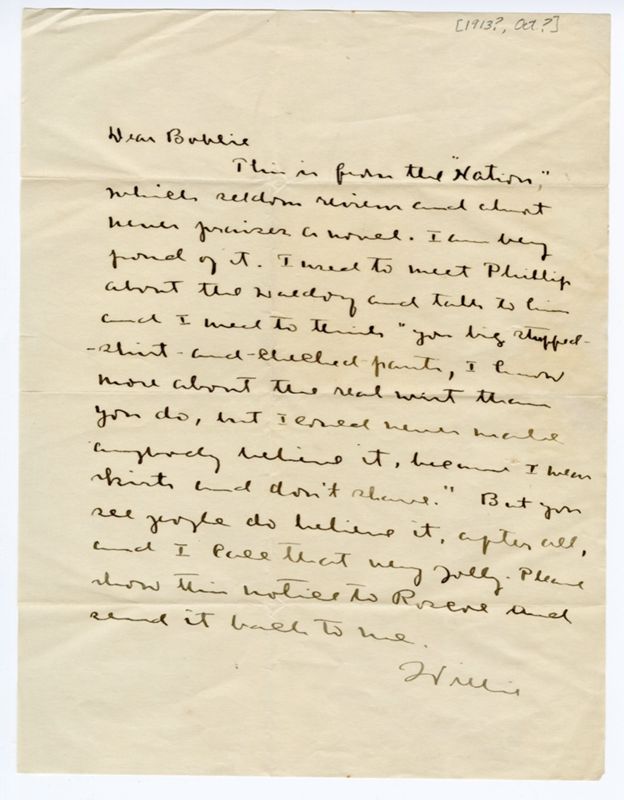 [1913?, Oct?]
Dear Bobbie
This is from the "Nation,"
which seldom reviews and almost
never praises a novel. I am very
proud of it. I used to meet Phillip
about the Waldorf and talk to him
and I used to think "you big stuffed-
-shirt-and-checked-pants, I know
more about the real west than
you do, but I could never make
anybody believe it, because I wear
skirts and don't shave." But you
see people do believe it, after all,
and I call that very jolly. Please
show this notice to Roscoe and
send it back to me.
Willie